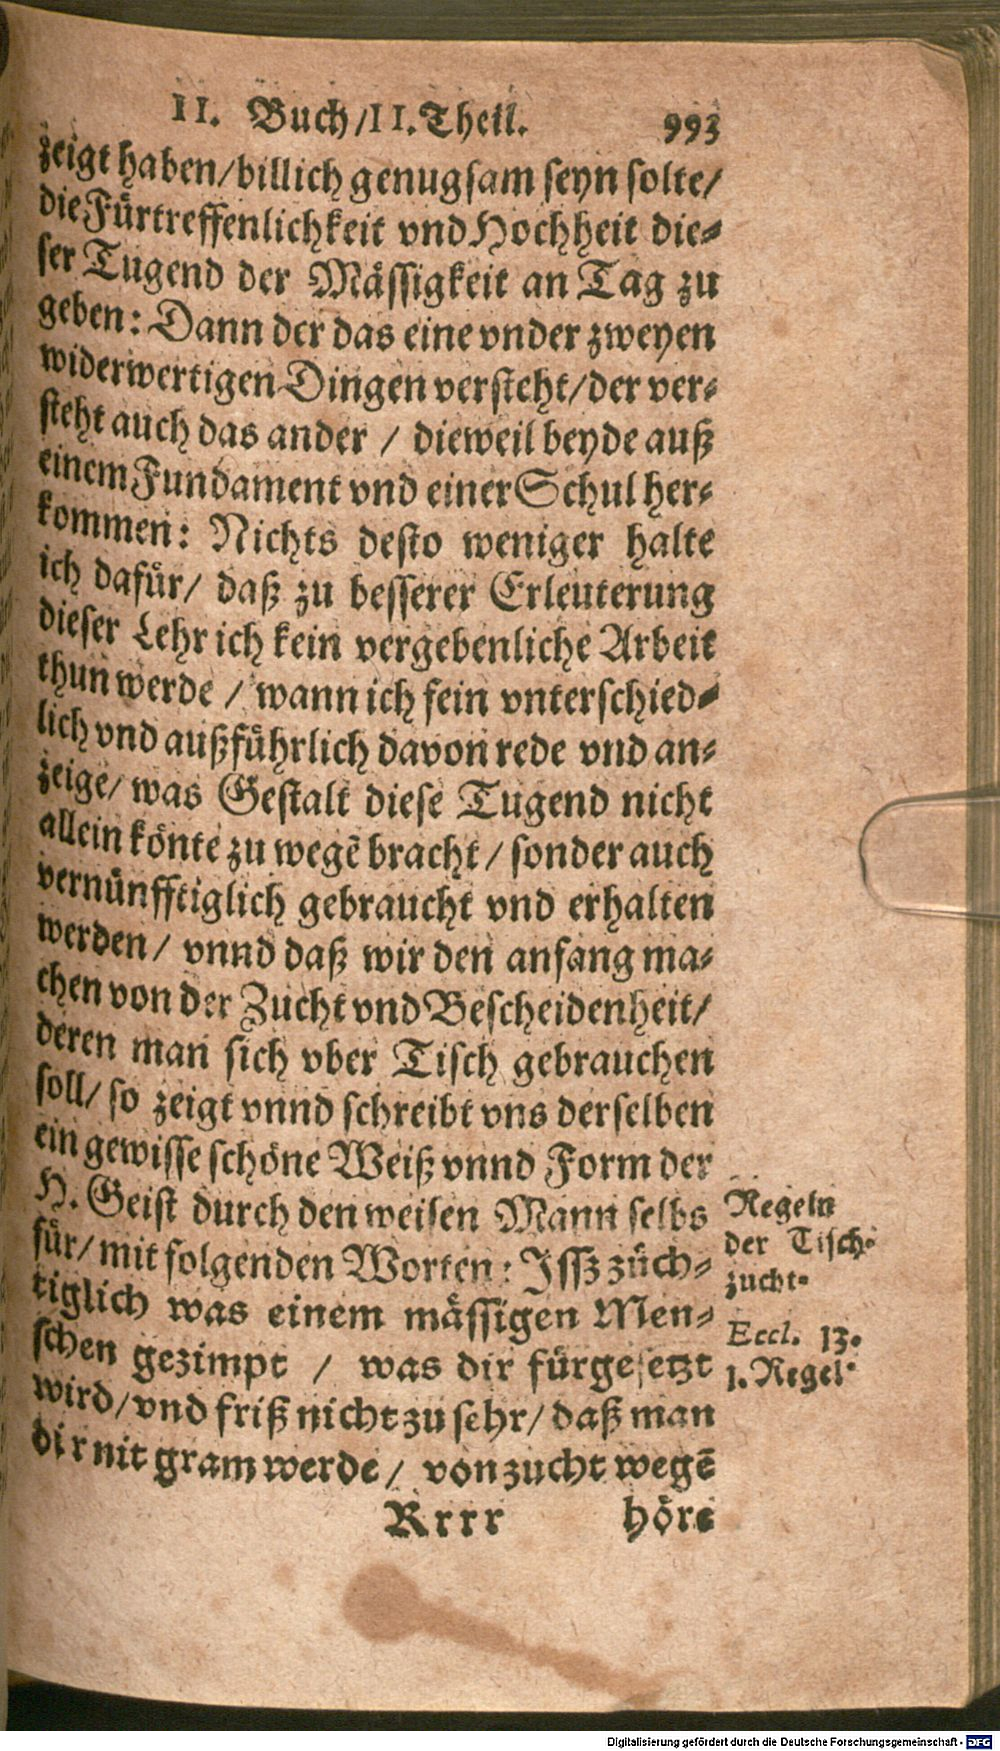 II. Buch/II. Theil. 993
zeigt haben/billich genugsam seyn solte/
die Fürtreffenlichkeit vnd Hochheit die-
ser Tugend der Mässigkeit an Tag zu
geben: Dann der das eine vnder zweyen
widerwertigen Dingen versteht/der ver-
steht auch das ander / dieweil beyde auß
einem Fundament vnd einer Schul her-
kommen: Nichts desto weniger halte
ich dafür/ daß zu besserer Erleuterung
dieser Lehr ich kein vergebenliche Arbeit
thun werde / wann ich fein vnterschied-
lich vnd außführlich davon rede vnd an-
zeige/ was Gestalt diese Tugend nicht
allein könte zu wegē bracht/ sonder auch
vernünfftiglich gebraucht vnd erhalten
werden/ vnnd daß wir den anfang ma-
chen von der Zucht vnd Bescheidenheit/
deren man sich vber Tisch gebrauchen
soll/ so zeigt vnnd schreibt vns derselben
ein gewisse schöne Weiß vnnd Form der
H. Geist durch den weisen Mann selbs
für/ mit folgenden Worten: Issz züch-
tiglich was einem mässigen Men-
schen gezimpt / was dir fürgesetzt
wird/vnd friß nicht zu sehr/ daß man
dir nit gram werde/ von zucht wegē
Rrrr höre
Regeln
der Tisch-
zucht.
Eccl. 13.
1. Regel.
Digitalisierung gefördert durch die Deutsche Forschungsgemeinschaft - DFG